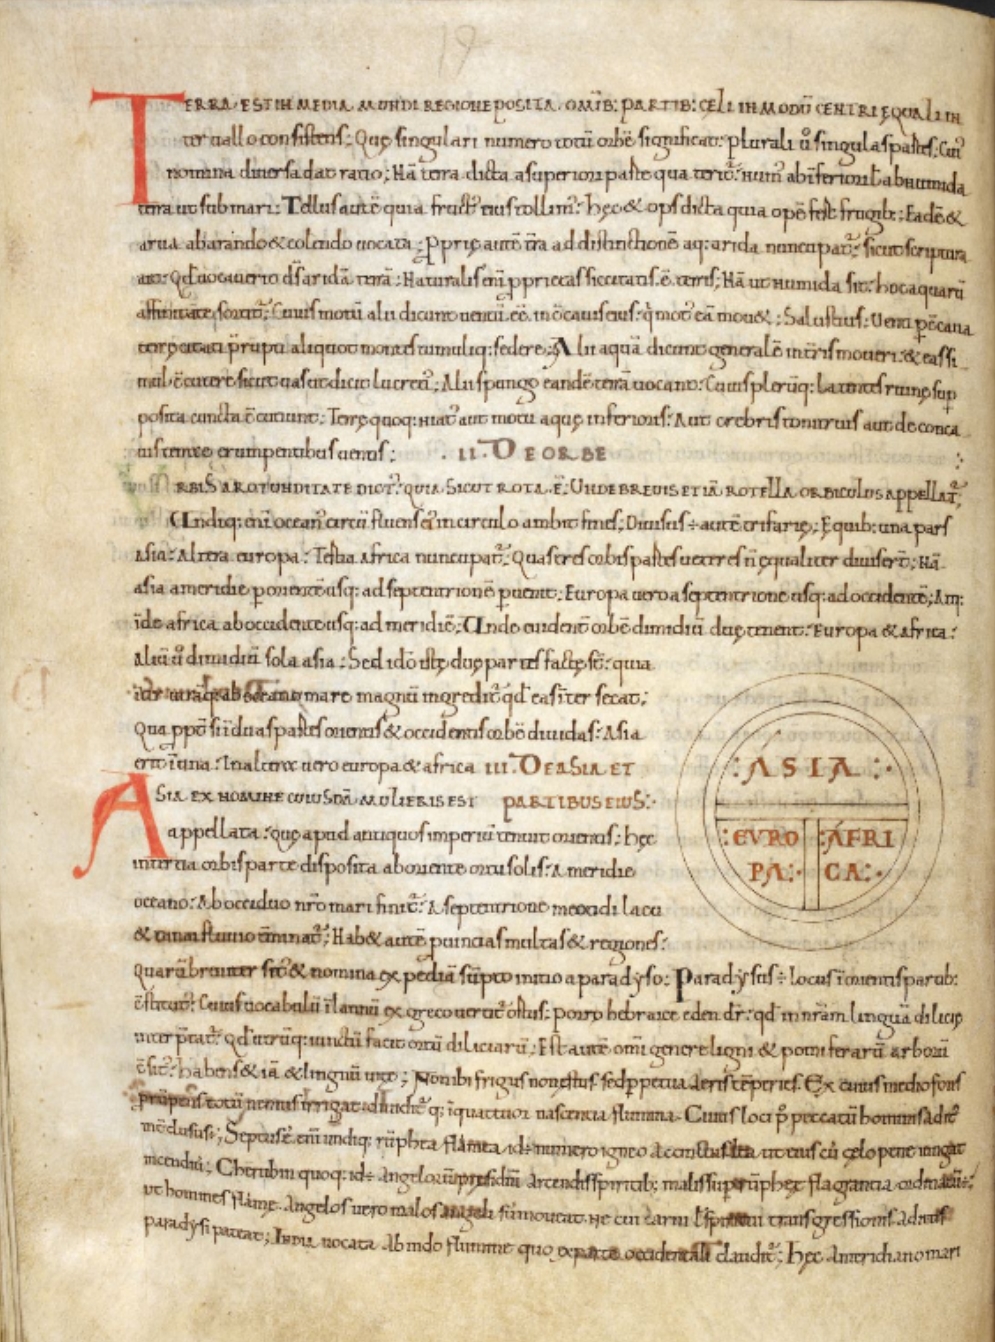 TERRA EST IN MEDIA MUNDI REGIONE POSITA. OMIB: PARTIB: CELI IN MODU CENTRI EQUALI IN
ter uallo consistens; Quę singulari numero totū orbē significat; plurali ů singulas partes; Cui'
nomina diuersa dat ratio; Nā terra dicta a superiori parte qua terit'; hum' ab inferiori ł ab humida
terra ut sub mari; Tellus autē quia fruct' eius tollim'; hęc & ops dicta quia opē fert frugib:; Eadē &
arua ab arando & colendo uocata; Proprię autē t̄ra ad distinctionē aq: arida nuncupat'; sicut scriptura
ait; Qđ uocauerit d̄s aridā terrā; Naturalis eni proprietas siccitatis .ē. terris; Nā ut humida sit; hoc aquarū
affinitate sortit'; Cuius motū alii dicunt uentū .eē. in cauis eius; q̊ mot' eā mou&; Salustius; Uenti p̄ caua
terrę citati p̄rupti aliquot montes tumuliq: sedere; Alii aquā dicunt generalē in t̄ris moueri; & eas si
mul cutere sicut uas ut dicit lucreti'; Alii spungo eandē terrā uocant; Cuius pleruq: latentes ruinę sup
posita cuncta c̄cutiunt; Terrę quoq: hiat' aut motu aquę inferioris; Aut crebris tonitruis aut de conca
uis terrę erumpentibus uentis; .II. DE ORBE
RBIS A ROTUNDITATE DICT'; QUIA SICUT ROTA .Ē; UNDE BREUIS ETIĀ ROTELLA ORBICULUS APPELLAT';
Undiq: eni ocean' circū fluens ei' in circulo ambit fines; Diuisus ÷ autē trifarię; E quib: una pars
Asia; Altera europa; Tertia Africa nuncupat'; Quas tres orbis partes ueteres n̄ equaliter diuiser̄; Nā
asia a meridie p orientē usq: ad septentrionē puenit; Europa uero a septentrione usq: ad occidentē; Atq:
īde africa ab occidente usq: ad meridiē; Unde euident' orbē dimidiū duę tenent; Europa & Africa;
Aliū ů dimidiū sola asia; Sed idō istę duę partes factę s̄t; quia
inter utraq: ab oceano mare magnū ingredit' qđ eas int̄ secat;
Qua ppt̄ si ī duas partes orientis & occidentis orbē diuidas; Asia
erit ī una; In altera uero europa & africa III. DE ASIA ET
ASIA EX NOMINE CUIUSDĀ MULIERIS EST PARTIBUS EIUS:
appellata; Quę apud antiquos imperiū tenuit orientis; hęc
in tertia orbis parte disposita ab oriente ortu solis; A meridie
oceano; Ab occiduo nr̄o mari finit'; A septentrione meotidi lacu
& tanai fluuio t̄minat'; Hab& autē puincias multas & regiones;
Quarū breuiter sit' & nomina expediā sūpto initio a paradyso; Paradysus ÷ locus ī orientis partib:
c̄stitut'; Cuius uocabulū ī latinū ex greco uertit' ortus; Porro hebraice eden dr̄; qđ in nr̄am linguā dilicię
interp̄tat'; Qđ utrūq: iunctū facit ortū diliciarū; Est autē omi genere ligni & pomiferarū arborū
c̄sit'; habens & iā & lingnū uitę; Non ibi frigus non estus. sed ppetua aeris tēperies. Ex cuius medio fons
prūpens totū nemus irrigat diuidit' q: ī quattuor nascentia flumina. Cuius loci p̊ peccatū hominis adit'
ītclusus; Septus ē eni undiq: rūphea flāmea id÷ muro igneo accinctus ita ut eius cū cęlo pene iungat
incendiū; Cherubin quoq: id÷ Angelorū p̄sidiū arcendis spiritib: malis sup rūpheę flagrantia ordinatū÷;
ut homines flāmę. Angelos uero malos angeli sūmoueat. ne cui carni ł spiritui transgressionis aditus
paradysi pateat; India uocata ab indo flumine quo ex parte occidentali claudit'; Hęc a meridiano mari
:ASIA:
:EVRO
PA:
:AFRI
CA: